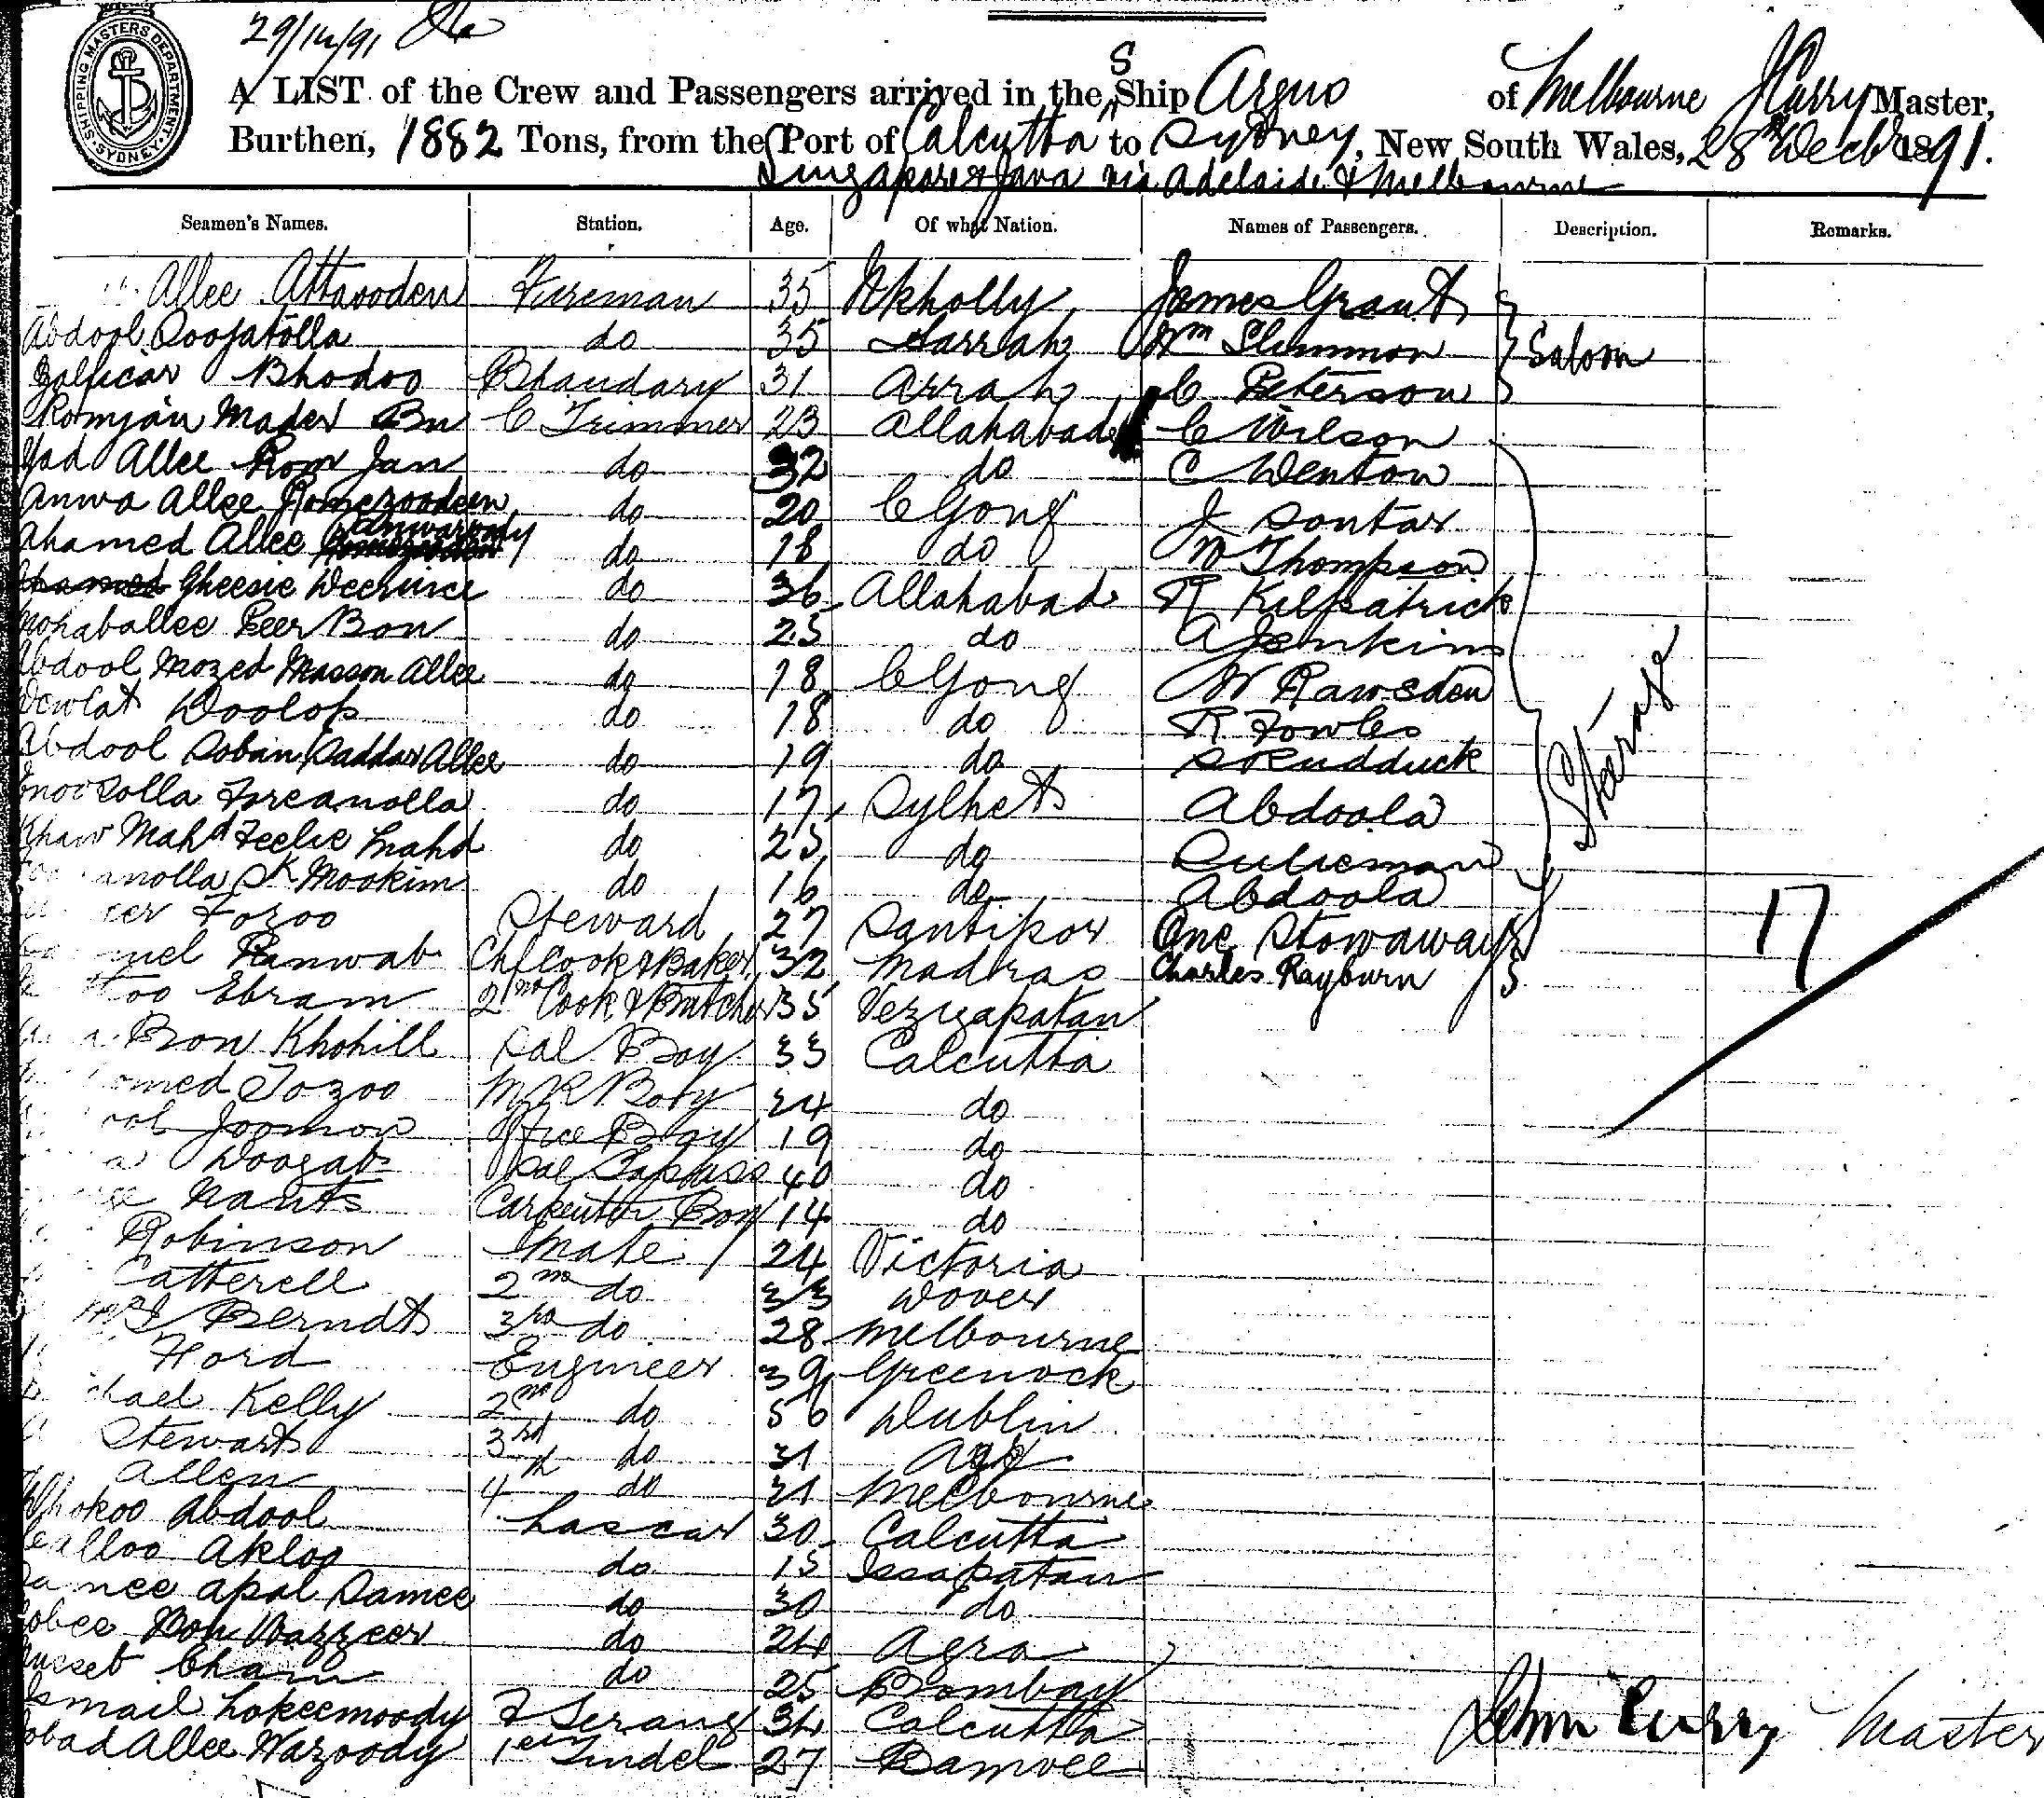 SHIPPING MASTERS DEPARTMENT SYDNEY
29/12/91
S
A LIST of the Crew and Passengers arrived in the Ship Argus of Melbourne J Curry Master,
Burthen, 1882 Tons, from the Port of Calcutta to Sydney, New South Wales, 28th Decbr 1891.
Singapore & Java via Adelaide & Melbourne
Seamen's Names. Station. Age. Of what Nation. Names of Passengers. Description. Remarks.
Allee Attaooden Fireman 35 James Grant
Abdool Soojatolla do 35 Harrah Wm Slimmon Saloon
Zolficar Bhodoo Bhandary 31 Arrah C Peterson
Romjan Mader Bu C Trimmer 23 Allahabad C Wilson
Allee Rom Jan do 32 do C Wenton
Anwa Allee Romezoodeen do 20 C Gong J Sontar
Ahamed Allee Anwaroody do 18 do W Thompson
Gheesie do 36 Allahabad R Kilpatrick
Mohaballee Peer Bon do 25 do A Jenkins
Abdool Mozed Masson Allee do 18 C Gong W Rawsden
Dewlat Doolop do 18 do R Fowles
Abdool Soban Saddar Allee do 19 do S Rudduck
Toreanolla do 17 Sylhet Abdoola
Khan Mahd Teelie Mahd do 23 do Sulieman
anolla Sk Mookim do 16 do Abdoola
Fozoo Steward 27 Santipor One Stowaway
Ranwab Chf Cook & Baker 32 Madras Charles Rayburn
Ebram 2nd Cook & Butcher 35 Vezigapatan
Bon Khohill Sal Boy 33 Calcutta
omed Fozoo M R Boy 24 do
Joomon Office Boy 19 do
Doogab Sal Topass 40 do
Nants Carpenter Boy 14 do
Robinson Mate 24 Victoria
Catterell 2nd do 33 Dover
Berndt 3rd do 28 Melbourne
Ford Engineer 39 Greenock
chael Kelly 2nd do 56 Dublin
Stewart 3rd do 31 Ayr
Allen 4th do 21 Melbourne
Abdool Lascar 30 Calcutta
Kalloo Akloo do 15 Issapatan
Samee Apal Samee do 30 do
Wazzeer do 24 Agra
do 25 Bombay
Ismail Lokeemoody 2 Serang 34 Calcutta
Allee Wazoody 1st Tindel 27 Bamvee
Steerage
17
John Curry Master